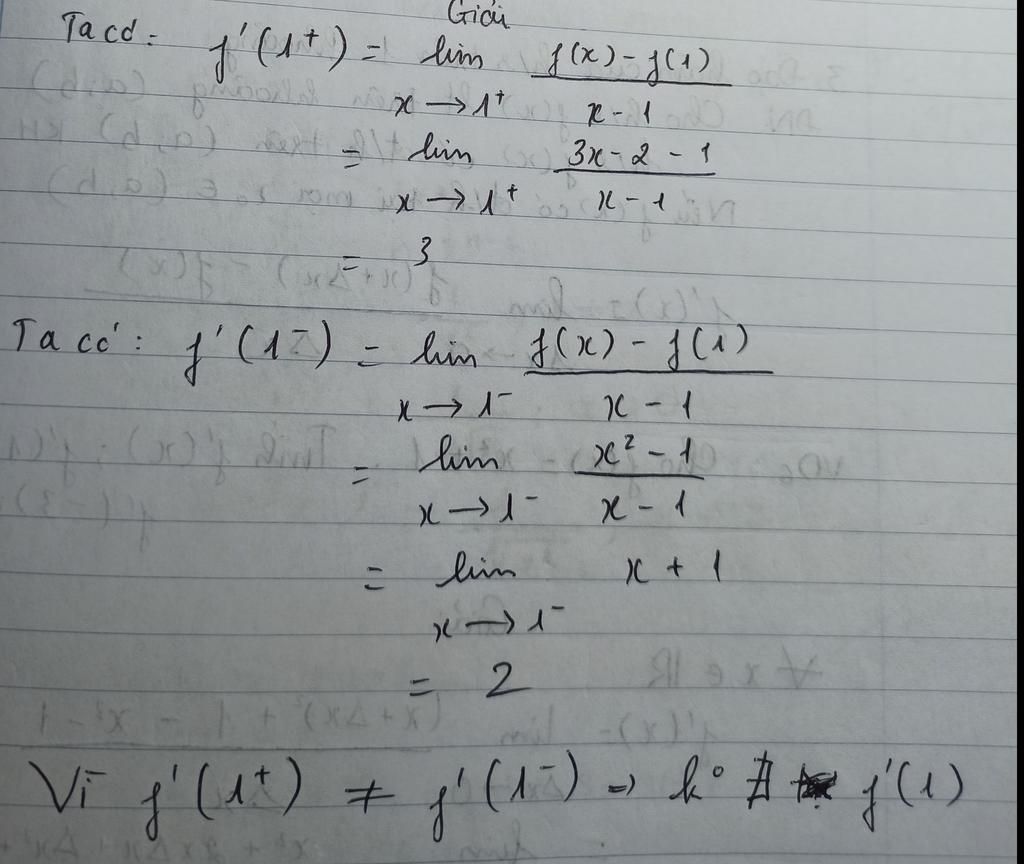 Giải
Ta có: f'(1⁺) = lim f(x) - f(1)
x → 1⁺ x - 1
= lim 3x - 2 - 1
x → 1⁺ x - 1
= 3
Ta có: f'(1⁻) = lim f(x) - f(1)
x → 1⁻ x - 1
= lim x² - 1
x → 1⁻ x - 1
= lim x + 1
x → 1⁻
= 2
Vì f'(1⁺) ≠ f'(1⁻) => k° ∄ f'(1)